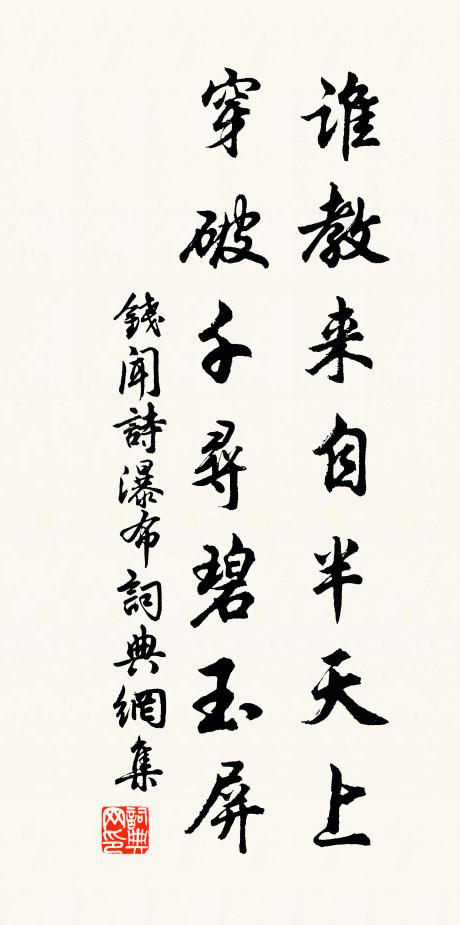 誰教来自半天上
穿破千尋碧玉屏
錢聞詩瀑布詞典網集
詞典
网印